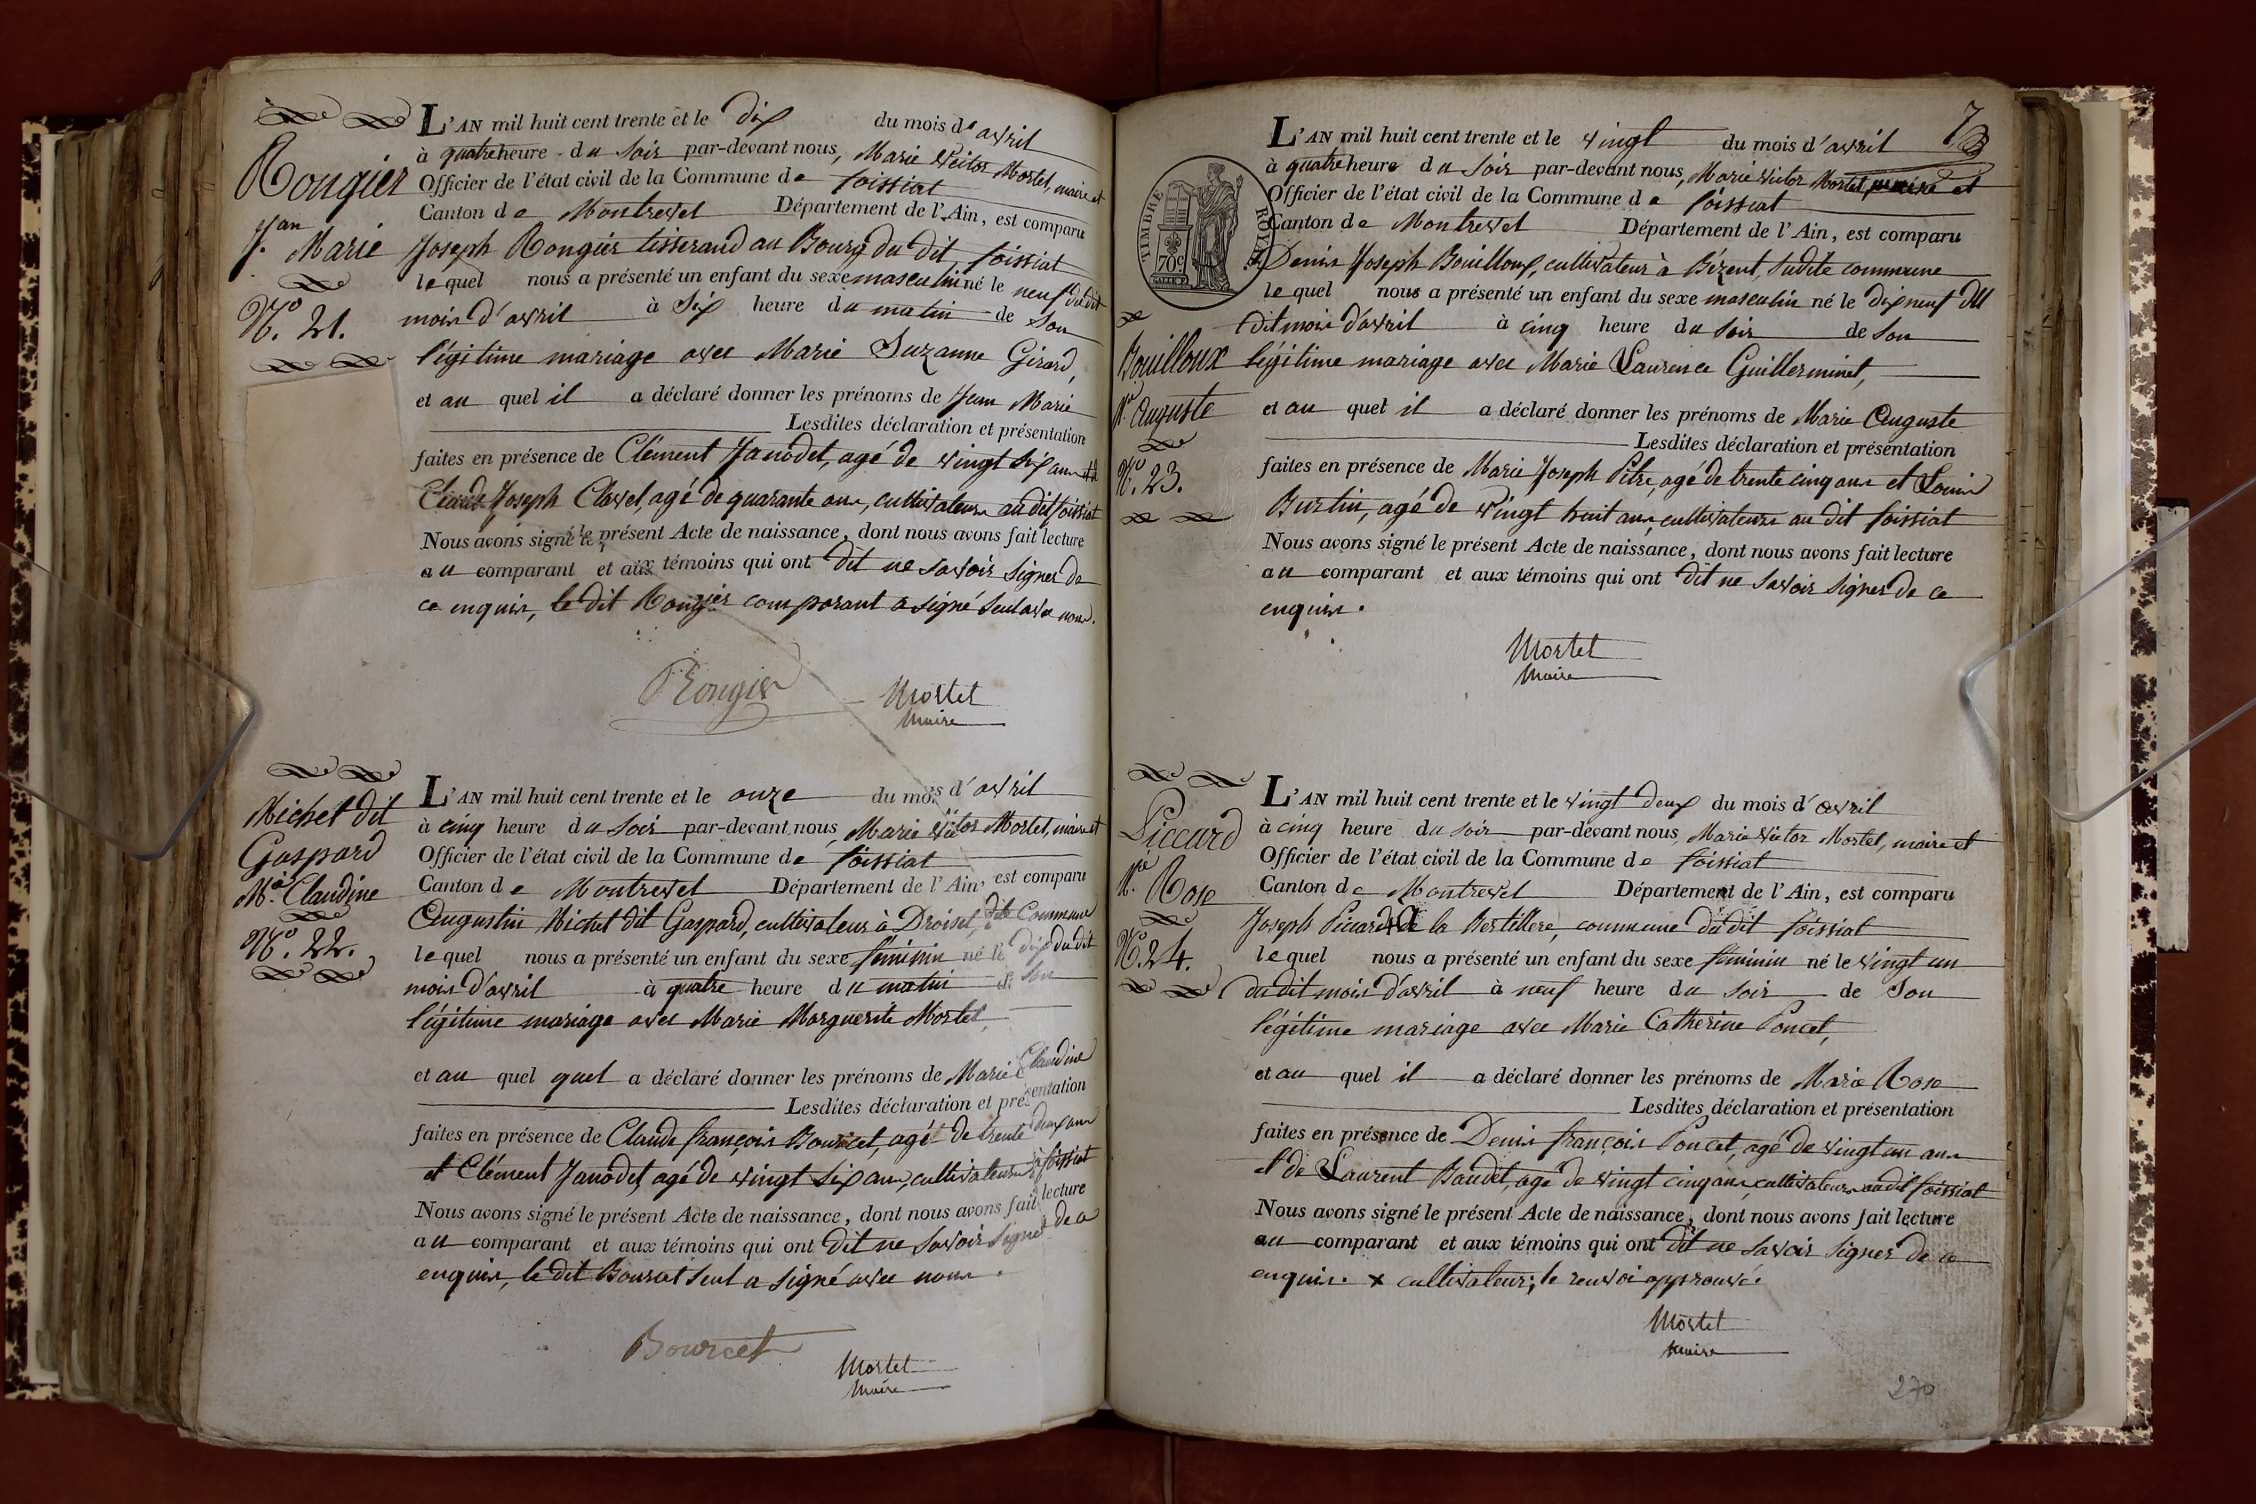 Rougier
J.an Marie
N.o 21.
L'AN mil huit cent trente et le dix du mois de avril
à quatre heure du soir par-devant nous, Marie Victor Mortel, maire et
Officier de l'état civil de la Commune de foissiat
Canton de Montrevel Département de l'Ain, est comparu
Joseph Rougier tisserand au Bourg du dit foissiat
le quel nous a présenté un enfant du sexe masculin né le neuf du dit
mois d'avril à six heure du matin de son
légitime mariage avec Marie Suzanne Girard,
et au quel il a déclaré donner les prénoms de Jean Marie
Lesdites déclaration et présentation
faites en présence de Clément Janodet, agé de vingt six ans et
Claude Joseph Clavel, agé de quarante ans, cultivateurs au dit foissiat
Nous avons signé le présent Acte de naissance, dont nous avons fait lecture
au comparant et aux témoins qui ont dit ne savoir signer de
ce enquis, le dit Rougier comparant a signé seul avec nous.
Rougier
Mortel
Maire
Michel dit
Gaspard
M.e Claudine
N.o 22.
L'AN mil huit cent trente et le onze du mois d'avril
à cinq heure du soir par-devant nous, Marie Victor Mortel, maire et
Officier de l'état civil de la Commune de foissiat
Canton de Montrevel Département de l'Ain, est comparu
Augustin Michel dit Gaspard, cultivateur à Droisel, dite Commune
le quel nous a présenté un enfant du sexe féminin né le dix du dit
mois d'avril à quatre heure du matin de son
légitime mariage avec Marie Marguerite Mortel,
et au quel quel a déclaré donner les prénoms de Marie Claudine
Lesdites déclaration et présentation
faites en présence de Claude françois Bourcet, agé de trente deux ans
et Clément Janodet, agé de vingt six ans, cultivateurs à foissiat
Nous avons signé le présent Acte de naissance, dont nous avons fait lecture
au comparant et aux témoins qui ont dit ne savoir signer de ce
enquis, le dit Bourcet seul a signé avec nous.
Bourcet
Mortel
Maire
7
TIMBRE ROYAL
70c
Bouilloux
M.e Auguste
N.o 23.
L'AN mil huit cent trente et le vingt du mois d'avril
à quatre heure du soir par-devant nous, Marie Victor Mortel, maire et
Officier de l'état civil de la Commune de foissiat
Canton de Montrevel Département de l'Ain, est comparu
Denis Joseph Bouilloux, cultivateur à Bézent, sudite commune
le quel nous a présenté un enfant du sexe masculin né le dix neuf du
dit mois d'avril à cinq heure du soir de son
légitime mariage avec Marie Laurence Guillerminet,
et au quel il a déclaré donner les prénoms de Marie Auguste
Lesdites déclaration et présentation
faites en présence de Marie Joseph Pitre, agé de trente cinq ans et Louis
Burtin, agé de vingt huit ans, cultivateurs au dit foissiat
Nous avons signé le présent Acte de naissance, dont nous avons fait lecture
au comparant et aux témoins qui ont dit ne savoir signer de ce
enquis.
Mortel
Maire
Piccard
M.ie Rose
N.o 24.
L'AN mil huit cent trente et le vingt deux du mois d'avril
à cinq heure du soir par-devant nous, Marie Victor Mortel, maire et
Officier de l'état civil de la Commune de foissiat
Canton de Montrevel Département de l'Ain, est comparu
Joseph Piccard x à la Bertillere, commune du dit foissiat
le quel nous a présenté un enfant du sexe féminin né le vingt un
du dit mois d'avril à neuf heure du soir de son
légitime mariage avec Marie Catherine Poncet,
et au quel il a déclaré donner les prénoms de Marie Rose
Lesdites déclaration et présentation
faites en présence de Denis françois Poncet, agé de vingt un ans
et de Laurent Baudet, age de vingt cinq ans, cultivateurs au dit foissiat
Nous avons signé le présent Acte de naissance, dont nous avons fait lecture
au comparant et aux témoins qui ont dit ne savoir signer de ce
enquis. x cultivateur; le renvoi approuvé.
Mortel
Maire
270